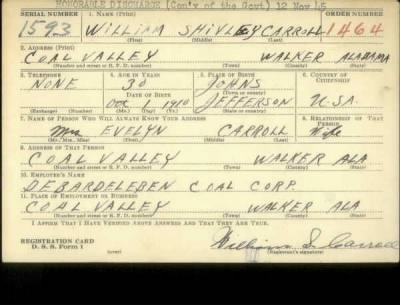 HONORABLE DISCHARGE (Con'v of the Govt) 12 Nov 45
SERIAL NUMBER 1. NAME (Print) ORDER NUMBER
1593 WILLIAM SHIVLEY CARROLL 1464
(First) (Middle) (Last)
2. ADDRESS (Print)
COAL VALLEY WALKER ALABAMA
(Number and street or R. F. D. number) (Town) (County) (State)
3. TELEPHONE 4. AGE IN YEARS 5. PLACE OF BIRTH 6. COUNTRY OF CITIZENSHIP
NONE 30 JOHNS
DATE OF BIRTH (Town or county)
OCT 1 1910 JEFFERSON U.S.A.
(Exchange) (Number) (Mo.) (Day) (Yr.) (State or country)
7. NAME OF PERSON WHO WILL ALWAYS KNOW YOUR ADDRESS 8. RELATIONSHIP OF THAT PERSON
Mrs EVELYN CARROLL Wife
(Mr., Mrs., Miss) (First) (Middle) (Last)
9. ADDRESS OF THAT PERSON
COAL VALLEY WALKER ALA
(Number and street or R. F. D. number) (Town) (County) (State)
10. EMPLOYER'S NAME
DEBARDELEBEN COAL CORP.
11. PLACE OF EMPLOYMENT OR BUSINESS
COAL VALLEY WALKER ALA
(Number and street or R. F. D. number) (Town) (County) (State)
I AFFIRM THAT I HAVE VERIFIED ABOVE ANSWERS AND THAT THEY ARE TRUE.
REGISTRATION CARD
D. S. S. Form 1 (over) William S. Carroll
(Registrant's signature)